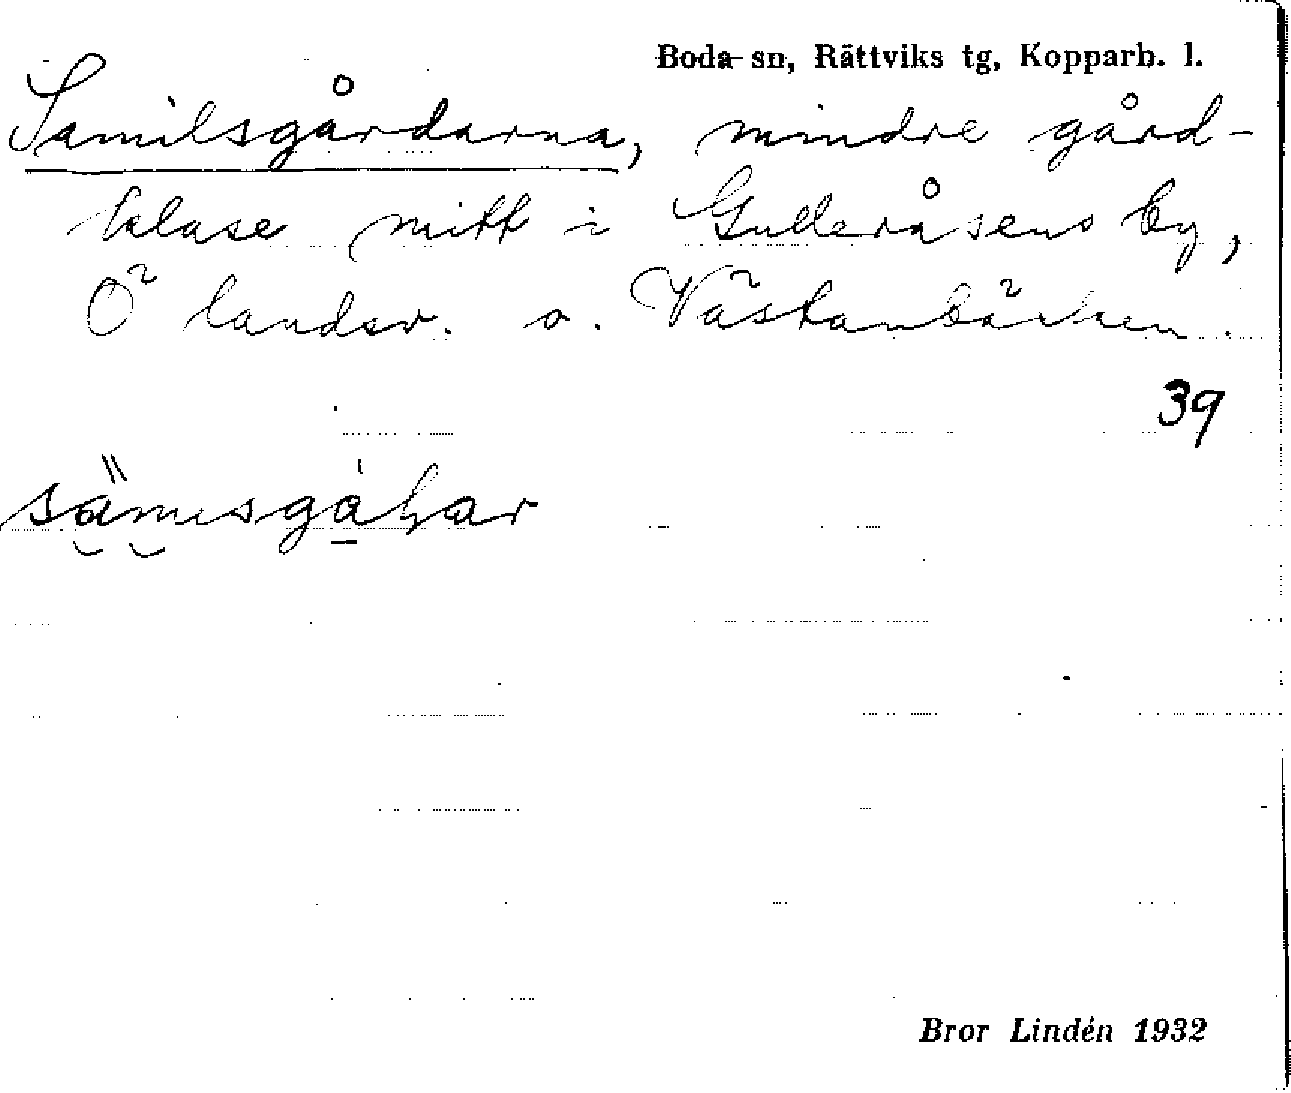 Boda sn, Rättviks tg, Kopparb. l.
Samilsgårdarna, mindre gård-
klase mitt i Gulleråsens by,
Ö landsv. o. Västanbäcken.
39
Bror Lindén 1932